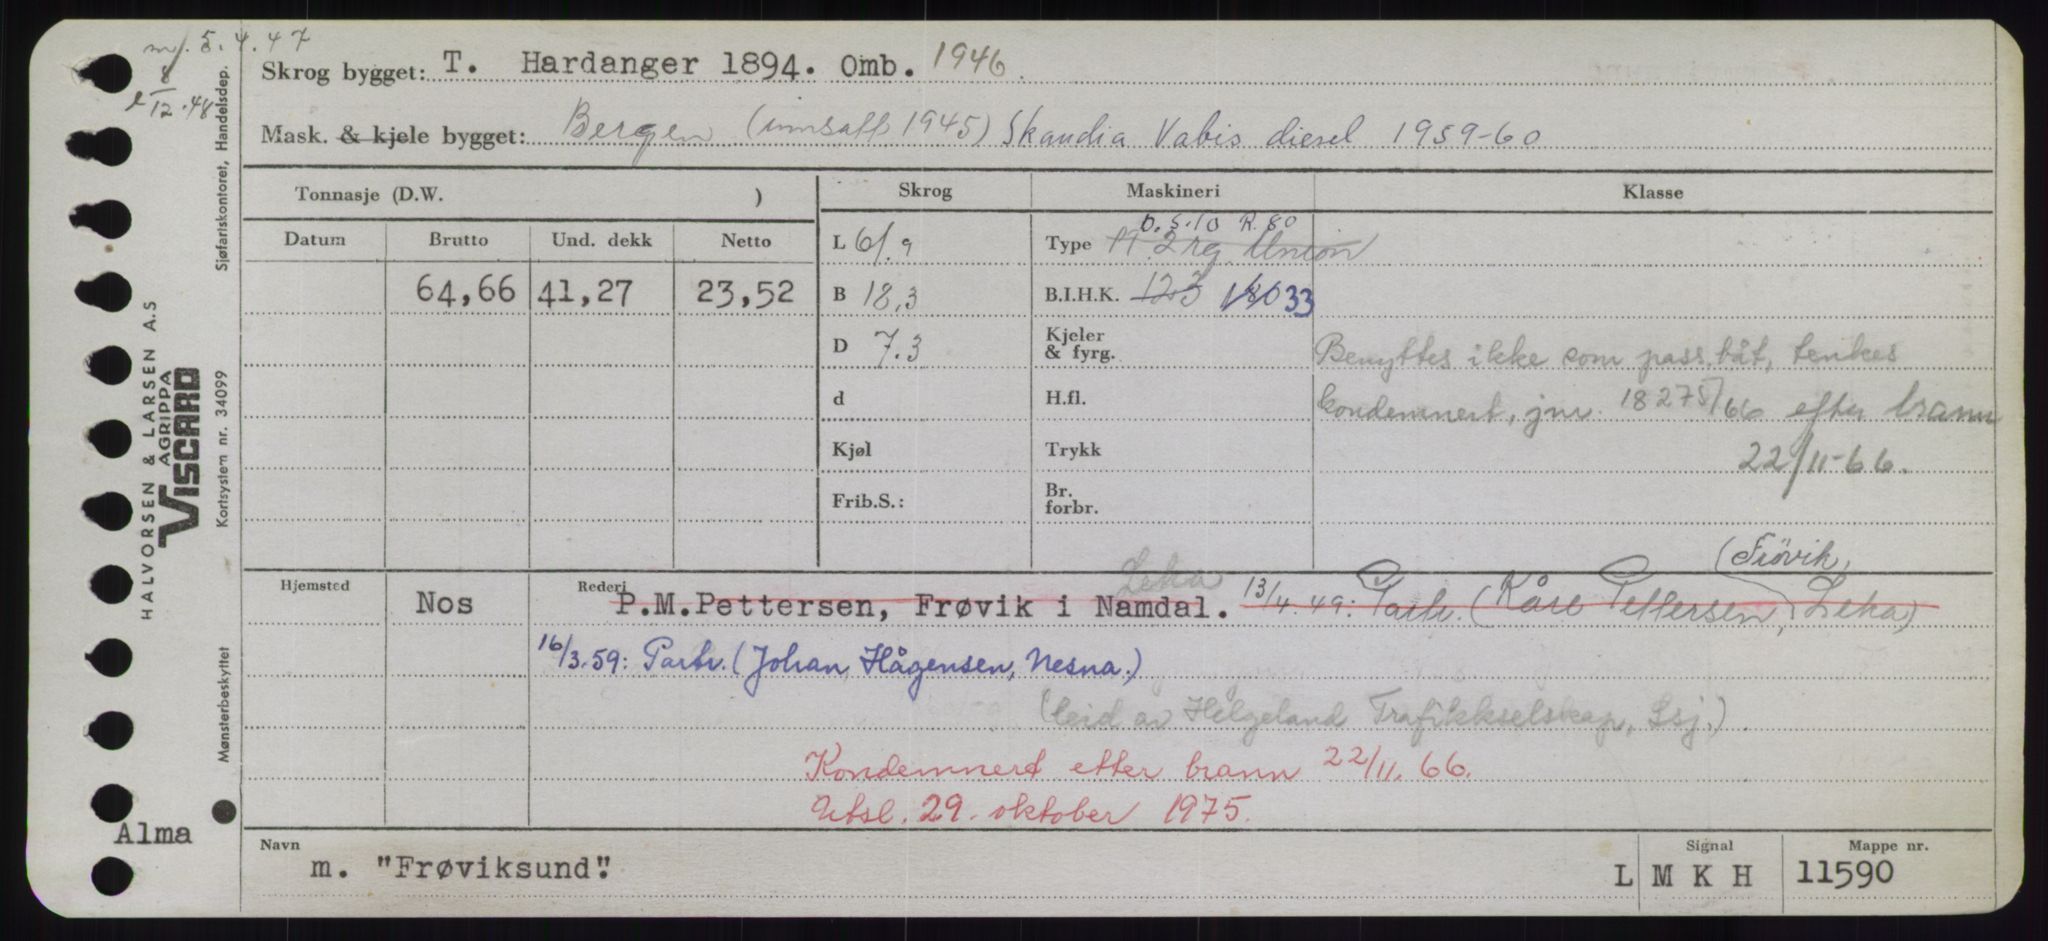 m/ 5.4.47
8/12.48
Skrog bygget: T. Hardanger 1894. Omb. 1946
Mask. & kjele bygget: Bergen (innsatt 1945) Skandia Vabis diesel 1959-60
Tonnasje (D.W. ) Skrog Maskineri Klasse
Datum Brutto Und. dekk Netto
64,66 41,27 23,52
L 61.9
B 18,3
D 7.3
d
Kjøl
Frib.S.:
D.S.10 R.80
Type M. 2 rg. Union
B.I.H.K. 123 180 33
Kjeler
& fyrg.
H.fl.
Trykk
Br.
forbr.
Benyttes ikke som pass.båt, tenkes
kondemnert, jnr. 18275/66 efter brann
22/11-66.
Hjemsted Rederi
Leka (Frövik,
Nos P.M.Pettersen, Frøvik i Namdal. 13/4.49: Partr. (Kåre Pettersen, Leka)
16/3.59: Partr. (Johan Hågensen, Nesna.)
(leid av Helgeland Trafikkselskap, Ssj.)
Kondemnert etter brann 22/11.66.
Utsl. 29. oktober 1975.
Alma
Navn Signal Mappe nr.
m. "Frøviksund". L M K H 11590
HALVORSEN & LARSEN A.S
AGRIPPA
VISCARD
Sjøfartskontoret, Handelsdep.
Kortsystem nr. 34099
Mønsterbeskyttet